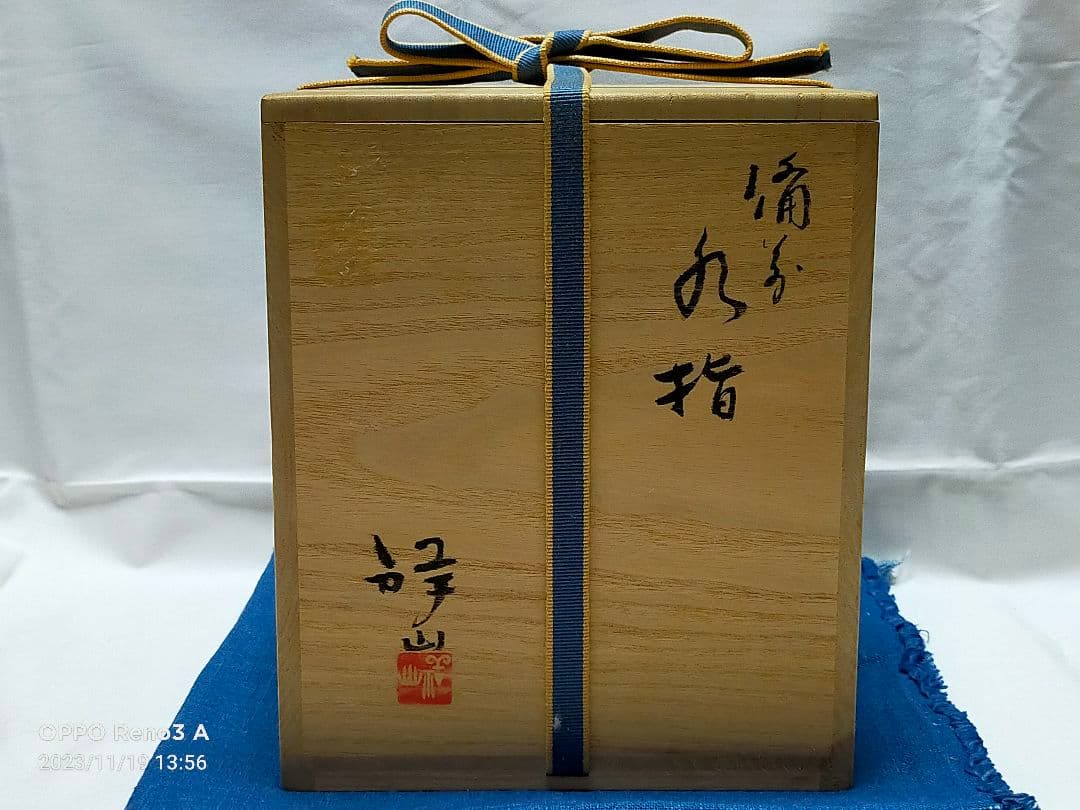 備前
水指
OPPO Reno3 A
2023/11/19 13:56